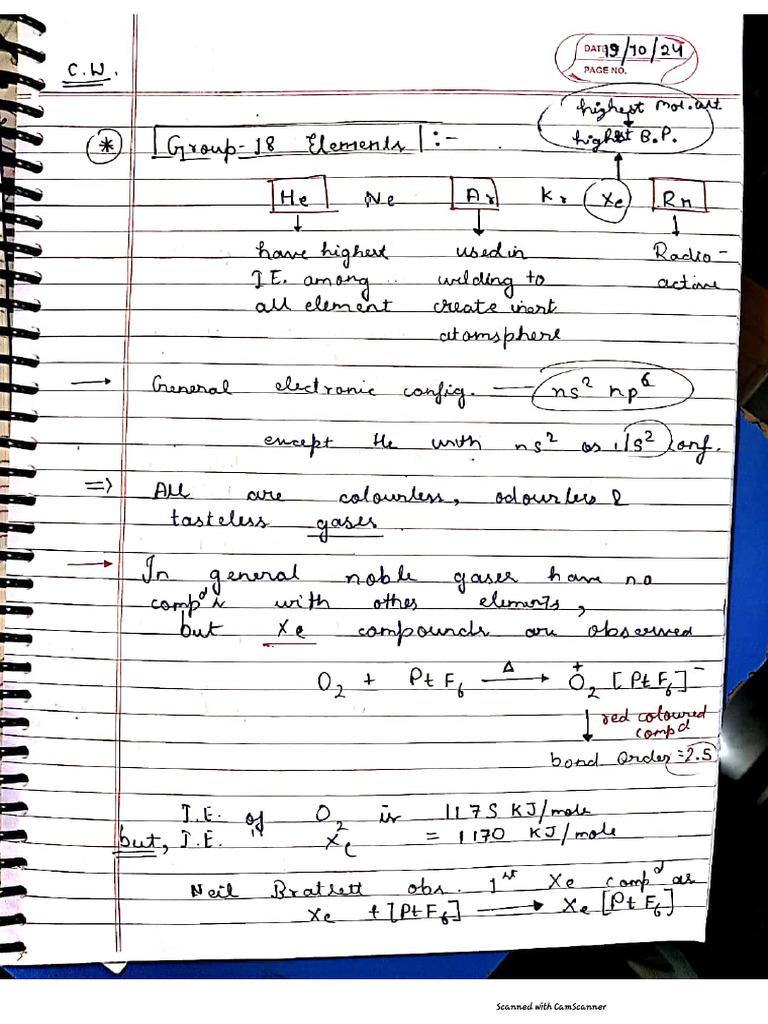 C.W.
DATE 19/10/24
PAGE NO.
highest mol. wt
highest B.P.
* Group-18 Elements :-
He Ne Ar Kr Xe Rn
have highest used in Radio-
I.E. among welding to active
all element create inert
atomsphere
→ General electronic config. — ns² np⁶
except He with ns² or 1s² conf.
=> All are colourless, odourless &
tasteless gases
→ In general noble gases have no
compd's with other elements,
but Xe compounds are observed
O₂ + PtF₆ —Δ→ O₂⁺ [PtF₆]⁻
red coloured
compd
bond order = 2.5
I.E. of O₂ is 1175 KJ/mole
but, I.E. " Xe = 1170 KJ/mole
Neil Bratlett obs. 1st Xe compd as
Xe + [PtF₆] → Xe [PtF₆]
Scanned with CamScanner